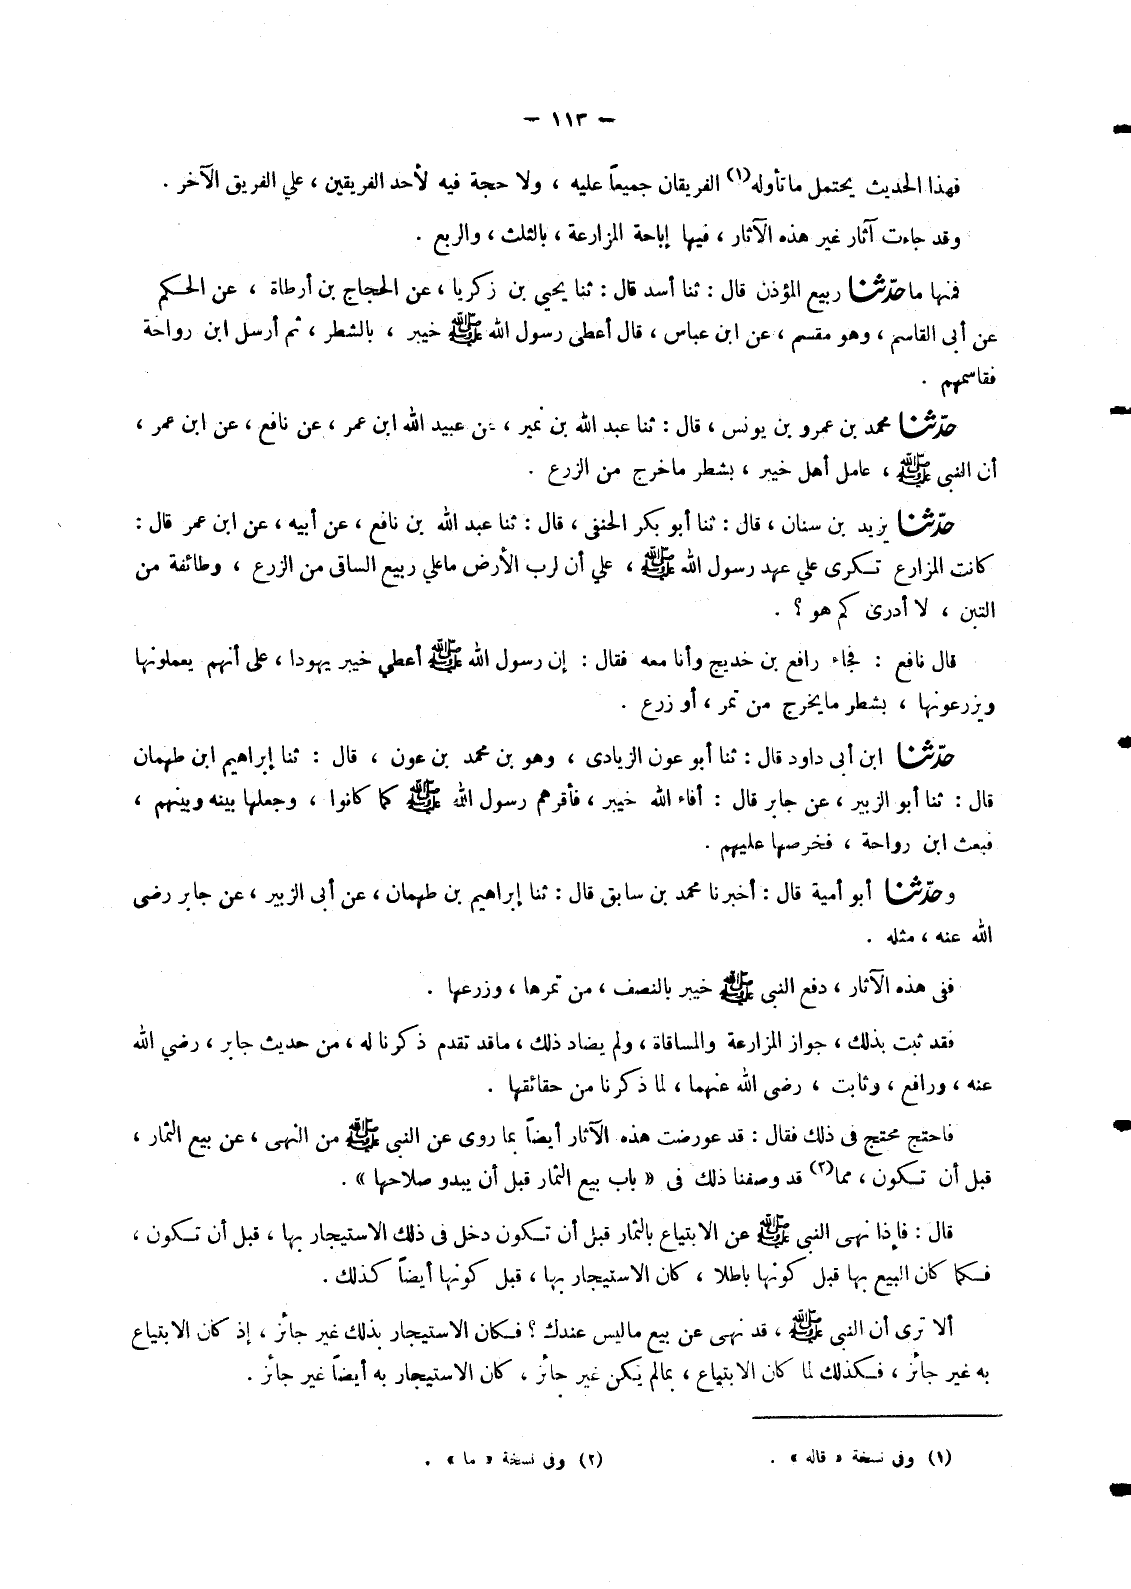 — ١١٣ —
فهذا الحديث يحتمل ما تأوله(١) الفريقان جميعاً عليه ، ولا حجة فيه لأحد الفريقين ، علي الفريق الآخر .
وقد جاءت آثار غير هذه الآثار ، فيها إباحة المزارعة ، بالثلث ، والربع .
فمنها ما حدّثنا ربيع المؤذن قال : ثنا أسد قال : ثنا يحيي بن زكريا ، عن الحجاج بن أرطاة ، عن الحكم
عن أبى القاسم ، وهو مقسم ، عن ابن عباس ، قال أعطى رسول الله ﷺ خيبر ، بالشطر ، ثم أرسل ابن رواحة
فقاسمهم .
حدّثنا محمد بن عمرو بن يونس ، قال : ثنا عبد الله بن نمير ، عن عبيد الله ابن عمر ، عن نافع ، عن ابن عمر ،
أن النبى ﷺ ، عامل أهل خيبر ، بشطر ماخرج من الزرع .
حدّثنا يزيد بن سنان ، قال : ثنا أبو بكر الحنفى ، قال : ثنا عبد الله بن نافع ، عن أبيه ، عن ابن عمر قال :
كانت المزارع تكرى علي عهد رسول الله ﷺ ، علي أن لرب الأرض ماعلي ربيع الساقى من الزرع ، وطائفة من
التبن ، لا أدرى كم هو ؟ .
قال نافع : فجاء رافع بن خديج وأنا معه فقال : إن رسول الله ﷺ أعطي خيبر يهودا ، على أنهم يعملونها
ويزرعونها ، بشطر مايخرج من تمر ، أو زرع .
حدّثنا ابن أبى داود قال : ثنا أبو عون الزيادى ، وهو بن محمد بن عون ، قال : ثنا إبراهيم ابن طهمان
قال : ثنا أبو الزبير ، عن جابر قال : أفاء الله خيبر ، فأقرهم رسول الله ﷺ كما كانوا ، وجعلها بينه وبينهم ،
فبعث ابن رواحة ، فخرصها عليهم .
وحدّثنا أبو أمية قال : أخبرنا محمد بن سابق قال : ثنا إبراهيم بن طهمان ، عن أبى الزبير ، عن جابر رضى
الله عنه ، مثله .
ففى هذه الآثار ، دفع النبى ﷺ خيبر بالنصف ، من تمرها ، وزرعها .
فقد ثبت بذلك ، جواز المزارعة والمساقاة ، ولم يضاد ذلك ، ماقد تقدم ذكرنا له ، من حديث جابر ، رضي الله
عنه ، ورافع ، وثابت ، رضى الله عنهما ، لما ذكرنا من حقائقها .
فاحتج محتج فى ذلك فقال : قد عورضت هذه الآثار أيضاً بما روى عن النبى ﷺ من النهى ، عن بيع الثمار ،
قبل أن تكون ، مما(٢) قد وصفنا ذلك فى « باب بيع الثمار قبل أن يبدو صلاحها » .
قال : فإذا نهى النبى ﷺ عن الابتياع بالثمار قبل أن تكون دخل فى ذلك الاستيجار بها ، قبل أن تكون ،
فكما كان البيع بها قبل كونها باطلا ، كان الاستيجار بها ، قبل كونها أيضاً كذلك .
ألا ترى أن النبى ﷺ ، قد نهى عن بيع ماليس عندك ؟ فكان الاستيجار بذلك غير جائز ، إذ كان الابتياع
به غير جائز ، فكذلك لما كان الابتياع ، بمالم يكن غير جائز ، كان الاستيجار به أيضاً غير جائز .
(١) وفى نسخة « قاله » .
(٢) وفى نسخة « ما » .